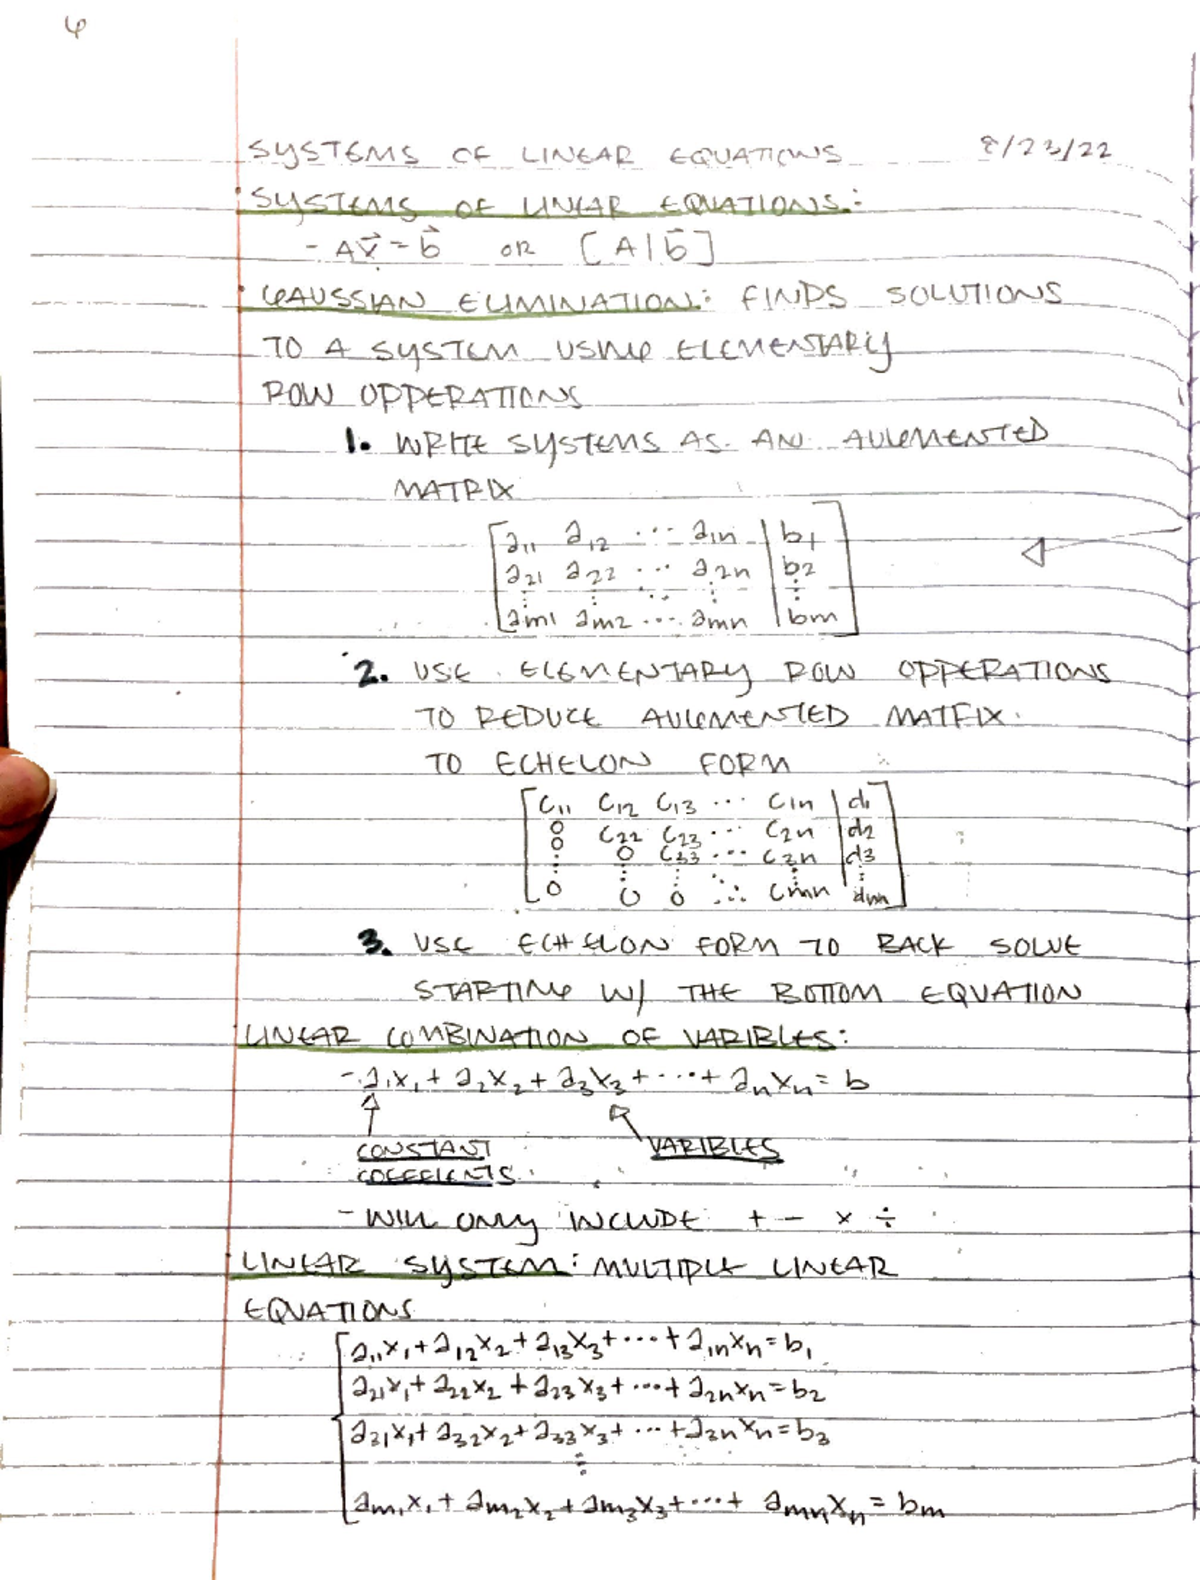 6
SYSTEMS OF LINEAR EQUATIONS 8/23/22
• SYSTEMS OF LINEAR EQUATIONS:
- Ax⃗ = b⃗ OR [A|b⃗]
• GAUSSIAN ELIMINATION: FINDS SOLUTIONS
TO A SYSTEM USING ELEMENTARY
ROW OPPERATIONS
1. WRITE SYSTEMS AS AN AUGMENTED
MATRIX
a11 a12 ... a1n | b1
a21 a22 ... a2n | b2
⋮ ⋮ ⋱ ⋮ | ⋮
am1 am2 ... amn | bm
2. USE ELEMENTARY ROW OPPERATIONS
TO REDUCE AUGMENTED MATRIX
TO ECHELON FORM
C11 C12 C13 ... C1n | d1
0 C22 C23 ... C2n | d2
0 0 C33 ... C3n | d3
⋮ ⋮ ⋮ ⋮ | ⋮
0 0 0 ⋱ Cmn | dm
3. USE ECHELON FORM TO BACK SOLVE
STARTING W/ THE BOTTOM EQUATION
LINEAR COMBINATION OF VARIBLES:
- a1x1 + a2x2 + a3x3 + ... + anxn = b
CONSTANT VARIBLES
COEFFICENTS
- WILL ONLY INCLUDE + - × ÷
LINEAR SYSTEM: MULTIPLE LINEAR
EQUATIONS
a11x1 + a12x2 + a13x3 + ... + a1nxn = b1
a21x1 + a22x2 + a23x3 + ... + a2nxn = b2
a31x1 + a32x2 + a33x3 + ... + a3nxn = b3
⋮
am1x1 + am2x2 + am3x3 + ... + amnxn = bm